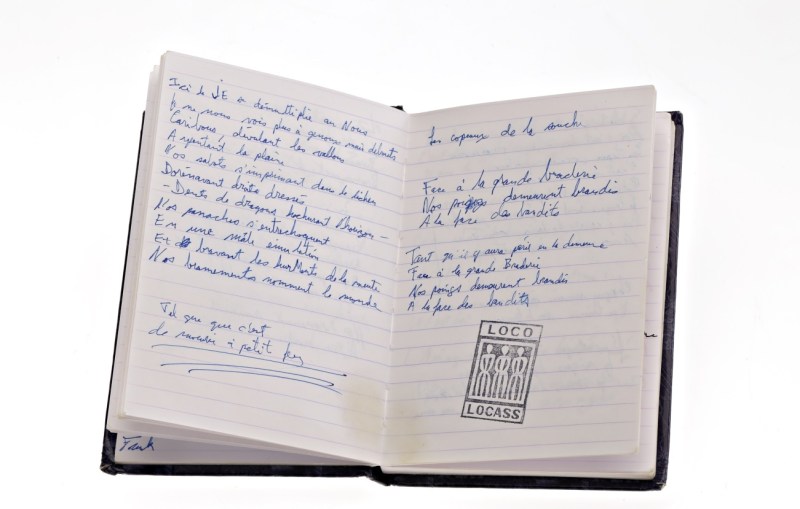 Ici le JE a démultiplié au Nous
ne nous vois plus à genoux mais debouts
Caribous, dévalant les vallons
Arpentant la plaine
Nos sabots s'impriment dans le lichen
Dorénavant droits dressés
- Dents de dragons hachurant l'horizon -
Nos panaches s'entrechoquent
En une mâle simulation
Et bravant les hurlants de la meute
Nos bramements nomment le monde
Tel que que c'est
de mourir à petit feu
Frank
Les copeaux de la souche
Face à la grande braderie
Nos poings demeurent brandis
A la face des bandits
Tant qu'il y aura péril en la demeure
Face à la grande Braderie
Nos poings demeurent brandis
A la face des bandits
LOCO
LOCASS